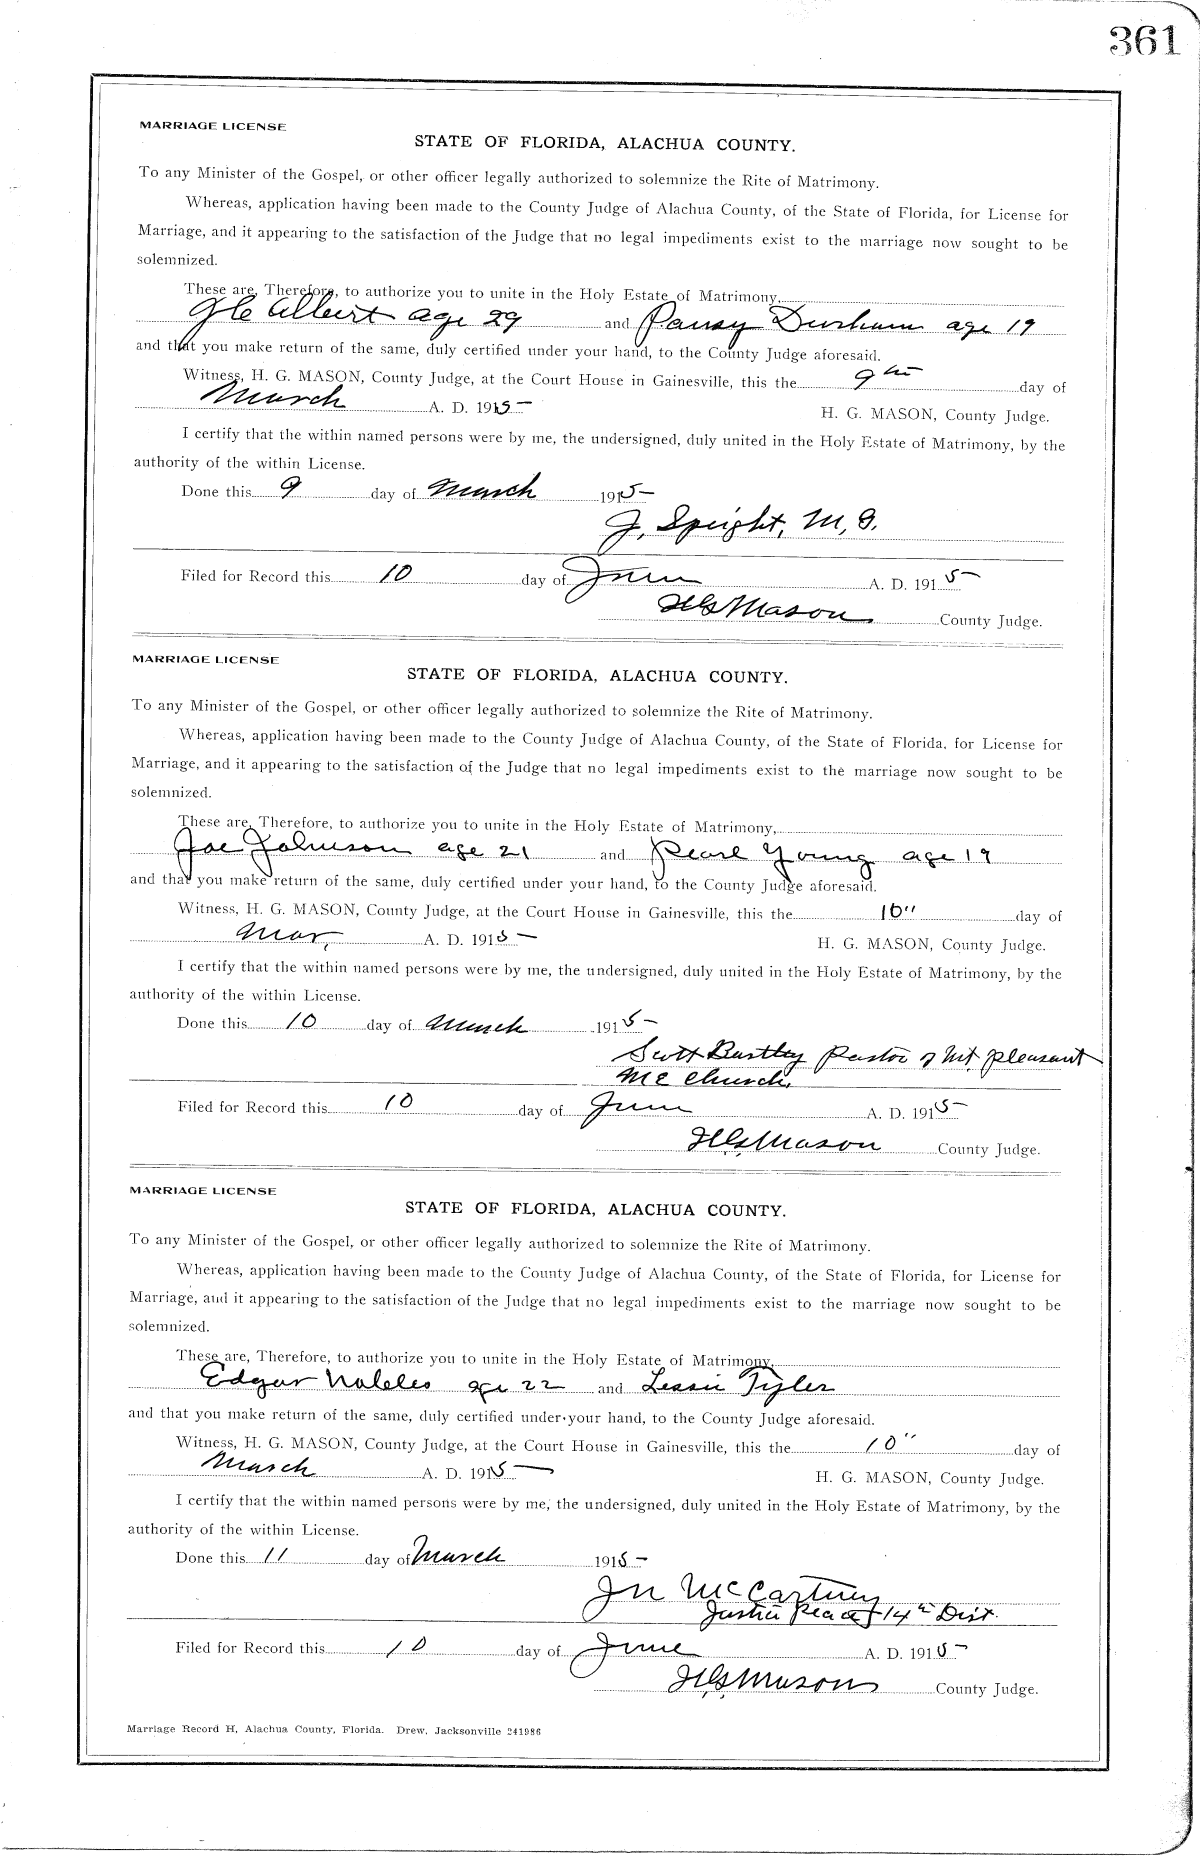 361
MARRIAGE LICENSE
STATE OF FLORIDA, ALACHUA COUNTY.
To any Minister of the Gospel, or other officer legally authorized to solemnize the Rite of Matrimony.
Whereas, application having been made to the County Judge of Alachua County, of the State of Florida, for License for
Marriage, and it appearing to the satisfaction of the Judge that no legal impediments exist to the marriage now sought to be
solemnized.
These are, Therefore, to authorize you to unite in the Holy Estate of Matrimony,
Albert age 29 and Pansy Durham age 19
and that you make return of the same, duly certified under your hand, to the County Judge aforesaid.
Witness, H. G. MASON, County Judge, at the Court House in Gainesville, this the 9th day of
March A. D. 1915 H. G. MASON, County Judge.
I certify that the within named persons were by me, the undersigned, duly united in the Holy Estate of Matrimony, by the
authority of the within License.
Done this 9 day of March 1915
J. Speight, M. G.
Filed for Record this 10 day of June A. D. 1915
HG Mason County Judge.
MARRIAGE LICENSE
STATE OF FLORIDA, ALACHUA COUNTY.
To any Minister of the Gospel, or other officer legally authorized to solemnize the Rite of Matrimony.
Whereas, application having been made to the County Judge of Alachua County, of the State of Florida, for License for
Marriage, and it appearing to the satisfaction of the Judge that no legal impediments exist to the marriage now sought to be
solemnized.
These are, Therefore, to authorize you to unite in the Holy Estate of Matrimony,
Joe Johnson age 21 and Pearl Young age 19
and that you make return of the same, duly certified under your hand, to the County Judge aforesaid.
Witness, H. G. MASON, County Judge, at the Court House in Gainesville, this the 10" day of
Mar, A. D. 1915 H. G. MASON, County Judge.
I certify that the within named persons were by me, the undersigned, duly united in the Holy Estate of Matrimony, by the
authority of the within License.
Done this 10 day of March 1915
Scott Bartley Pastor of Mt. Pleasant
ME Church.
Filed for Record this 10 day of June A. D. 1915
H.G. Mason County Judge.
MARRIAGE LICENSE
STATE OF FLORIDA, ALACHUA COUNTY.
To any Minister of the Gospel, or other officer legally authorized to solemnize the Rite of Matrimony.
Whereas, application having been made to the County Judge of Alachua County, of the State of Florida, for License for
Marriage, and it appearing to the satisfaction of the Judge that no legal impediments exist to the marriage now sought to be
solemnized.
These are, Therefore, to authorize you to unite in the Holy Estate of Matrimony,
Edgar age 22 and Lessie Tyler
and that you make return of the same, duly certified under your hand, to the County Judge aforesaid.
Witness, H. G. MASON, County Judge, at the Court House in Gainesville, this the 10" day of
March A. D. 1915 H. G. MASON, County Judge.
I certify that the within named persons were by me, the undersigned, duly united in the Holy Estate of Matrimony, by the
authority of the within License.
Done this 11 day of March 1915
McCartney
Justice Peace 14th Dist.
Filed for Record this 10 day of June A. D. 1915
H.G. Mason County Judge.
Marriage Record H, Alachua County, Florida. Drew, Jacksonville 241986